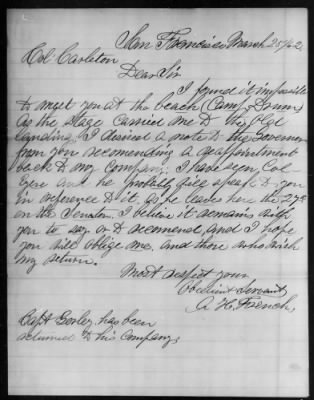 San Francisco March 25th/62
Col Carleton
Dear Sir
I found it impossible
to meet you at the beach (Camp Drum)
as the stage carried me to the Old
landing. I desired a note to the Governor
from you recomending a reappointment
back to my Company. I have seen Col
and he probably will speak to you
in reference to it, as he leaves here the 27th
on the Senator. I believe it remains with
you to say or to recomend, and I hope
you will oblige me, and those who wish
my return.
Most respect your
Obedient Servant
A. H. French,
Capt Gorley has been
returned to his Company,